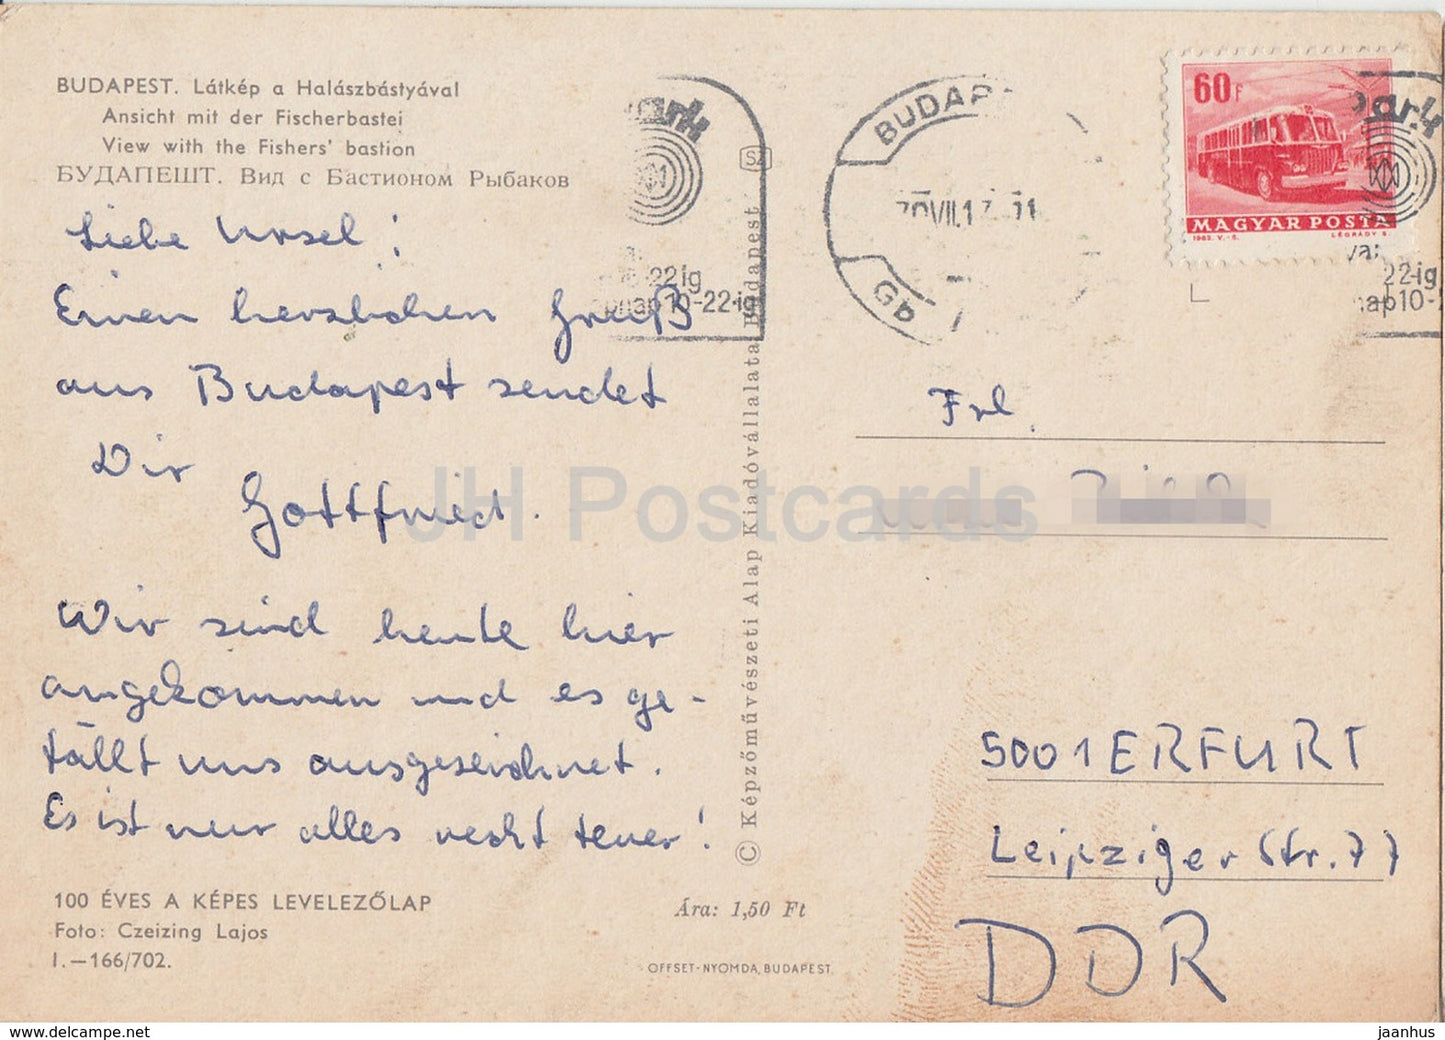 BUDAPEST. Látkép a Halászbástyával
Ansicht mit der Fischerbastei
View with the Fishers' bastion
БУДАПЕШТ. Вид с Бастионом Рыбаков
Liebe Ursel!
Einen herzlichen Gruß
aus Budapest sendet
Dir
Gottfried.
Wir sind heute hier
angekommen und es ge-
fällt uns ausgezeichnet.
Es ist nur alles recht teuer!
100 ÉVES A KÉPES LEVELEZŐLAP
Foto: Czeizing Lajos
I.—166/702.
22-ig
10-22-ig
SZ
© Képzőművészeti Alap Kiadóvállalata Budapest
Ára: 1,50 Ft
OFFSET-NYOMDA, BUDAPEST.
BUDAP
70 VII.1
60F
MAGYAR POSTA
1963. V.-6. LÉGRÁDY S.
22-ig
ap10-
Frl.
5001 ERFURT
Leipziger Str. 77
DDR
JH Postcards
jaanhus